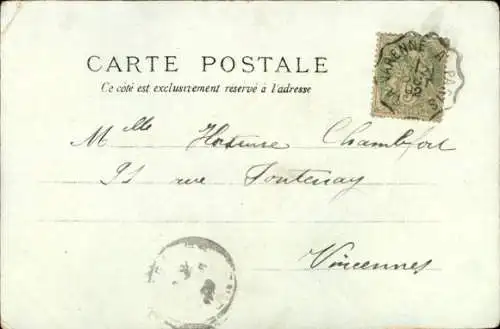 CARTE POSTALE
Ce côté est exclusivement réservé à l'adresse
LA VARENNE A PARIS
Mlle Chambfort
rue Fontenay
Vincennes